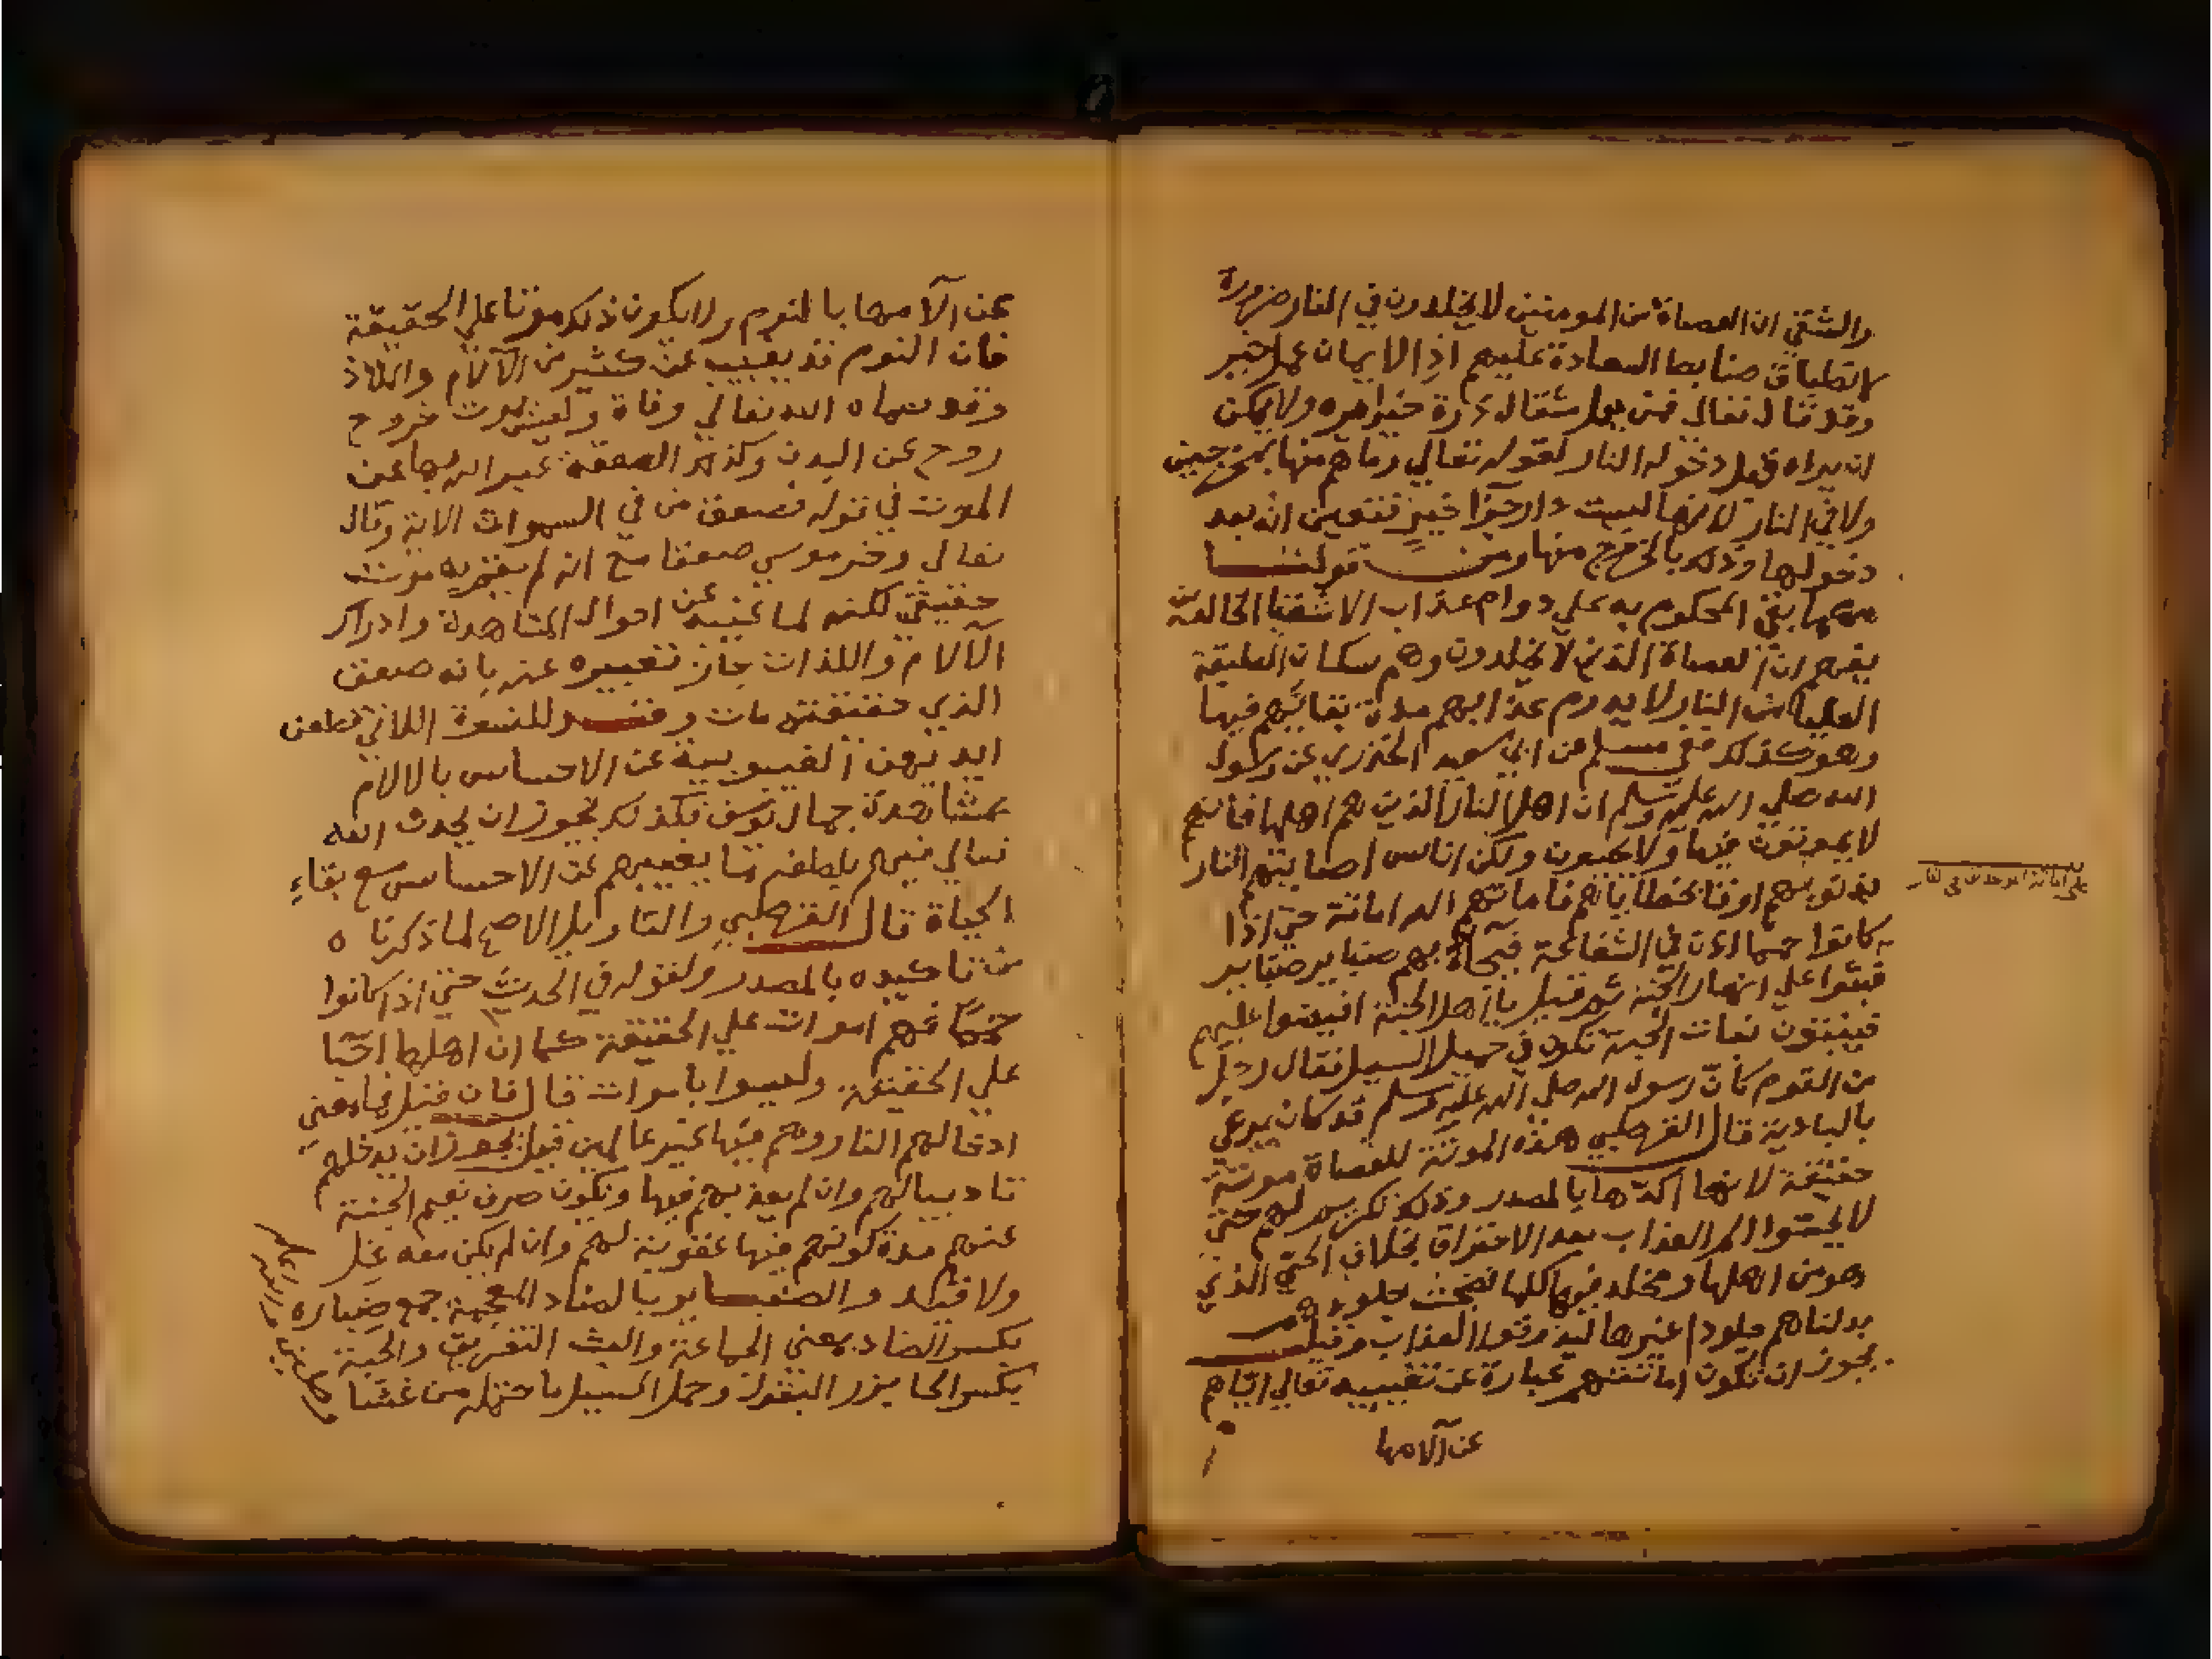 والشقي ان العصاة من المومنين لا يخلدون في النار ضرورة
لانطباق ضابط السعادة عليهم اذ الايمان عمل خير
وقد قال تعالى فمن يعمل مثقال ذرة خيرا يره ولا يمكن
ان يراه قبل دخوله النار لقوله تعالي وما هم منها بمخرجين
ولا في النار لانها ليست دار جزا خير فتعين انه بعد
دخولها وذلك بالخروج منها ومن قولنا
بقي المحكوم به علي دوام عذاب الاشقيا الخالدين
يفهم ان العصاة الذين لا يخلدون وهم سكان الطبقة
العليا من النار لا يدوم عذابهم مدة بقائهم فيها
وهو كذلك ففي مسلم عن ابي سعيد الخذري عن رسول
الله صلي الله عليه وسلم ان اهل النار الذين هم اهلها فانهم
لا يموتون فيها ولا يحيون ولكن اناس اصابتهم النار
بذنوبهم او قال بخطاياهم فاماتهم الله اماتة حتي اذا
كانوا حمما اذن في الشفاعة فيجاء بهم ضباير ضباير
فبثوا علي انهار الجنة ثم قيل يا اهل الجنة افيضوا عليهم
فينبتون نبات الحبة تكون في حميل السيل فقال رجل
من القوم كان رسول الله صلي الله عليه وسلم قد كان يرعي
بالبادية قال القرطبي هذه الموتة للعصاة موتة
حقيقة لانها اكدها بالمصدر وذلك تكريم لهم حتي
لا يحسوا الم العذاب بعد الاحتراق بخلاف الحي الذي
هو من اهلها ومخلد فيها كلما نضجت جلودهم
بدلناهم جلودا غيرها ليذوقوا العذاب وقيل
يجوز ان تكون اماتتهم عبارة عن تغييبه تعالي اياهم
عن آلامها
عن الآمها بالنوم ولا يكون ذلك موتا علي الحقيقة
فان النوم قد يغيب عن كثير من الآلام والملاذ
وقد سماه الله تعالي وفاة وليس بموت خروج
روح عن البدن وكذلك الصعقة عبر الله بها عن
الموت في قوله فصعق من في السموات الاية وقال
تعالي وخر موسي صعقا مع انه لم يعتريه موت
حقيقي لكنه لما غيب عن احوال المشاهدة وادراك
الآلام واللذات جاز تعبيره عنه بانه صعق
الذي حقيقته مات و للنسوة اللاتي قطعن
ايديهن الغيبوبية عن الاحساس بالالام
بمشاهدة جمال يوسف فكذلك يجوز ان يحدث الله
تعالي فيهم بلطفه ما يغيبهم عن الاحساس مع بقاء
الحياة قال القرطبي والتاويل الاصح لما ذكرنا ه
من تاكيده بالمصدر ولقوله في الحديث حتي اذا كانوا
حمما فهم اموات علي الحقيقة كما ان اهلها احيا
علي الحقيقة وليسوا باموات قال فان قيل فما معني
ادخالهم النار وهم فيها غير عالمين قيل يجوز ان يدخلهم
تاديبا لهم وان لم يعذبهم فيها ويكون صرف نعيم الجنة
عنهم مدة كونهم فيها عقوبة لهم وان لم يكن معه غل
ولا قيد والضباير بالضاد المعجمة جمع ضباره
بكسر الضاد بمعني الجماعة والبث التفريق والحبة
بكسر الحا بزر البقول وحمل السيل ما حمله من غثا